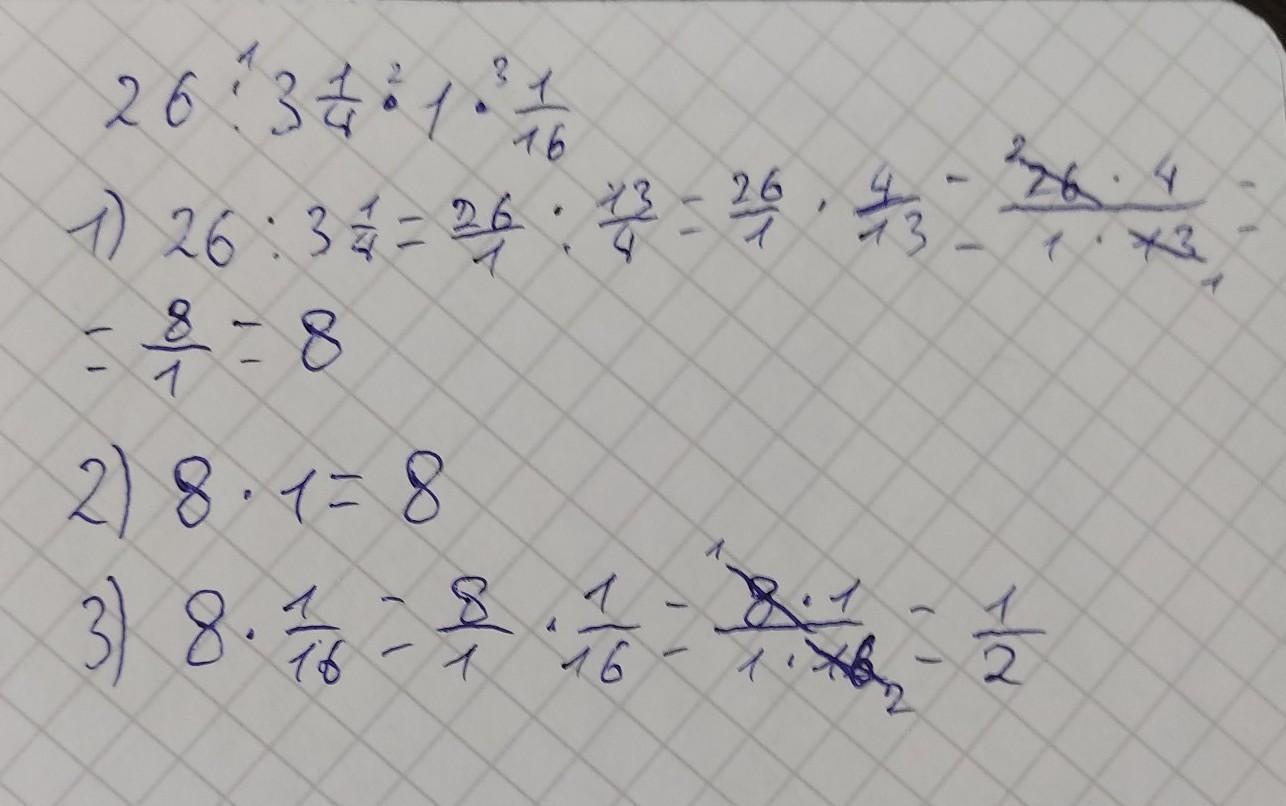 26 :¹ 3 1/4 ·² 1 ·³ 1/16
1) 26 : 3 1/4 = 26/1 : 13/4 = 26/1 · 4/13 = ²26 · 4 / 1 · 13₁ =
= 8/1 = 8
2) 8 · 1 = 8
3) 8 · 1/16 = 8/1 · 1/16 = ¹8 · 1 / 1 · 16₂ = 1/2